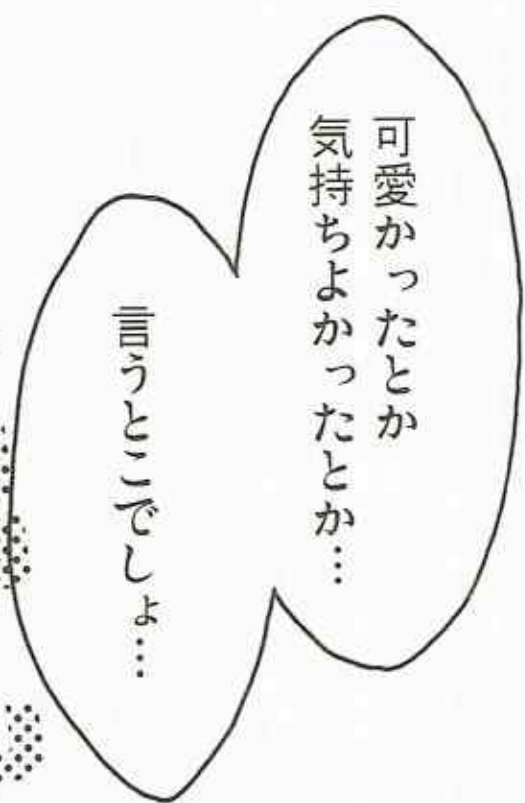 可愛かったとか
気持ちよかったとか…
言うとこでしょ…